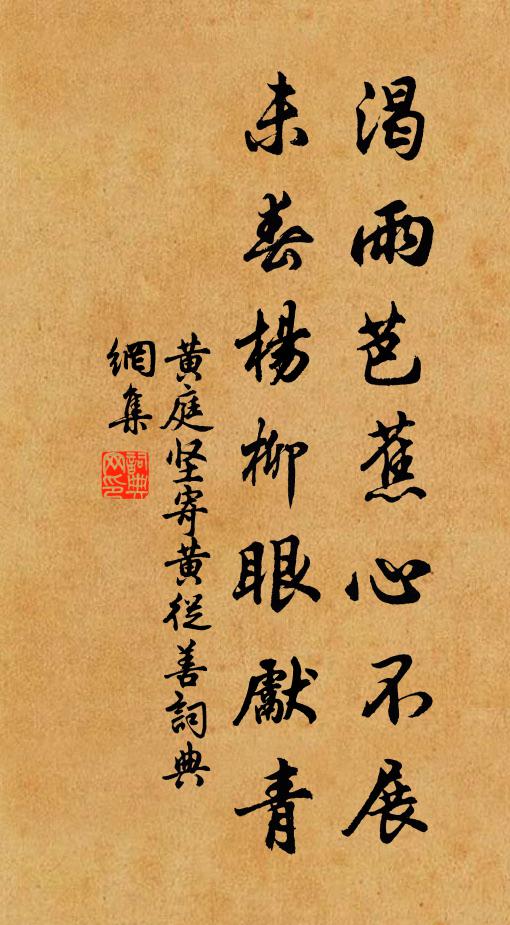 渴雨芭蕉心不展
未春楊柳眼獻青
黄庭坚寄黄從善詞典
網集
詞典
网印